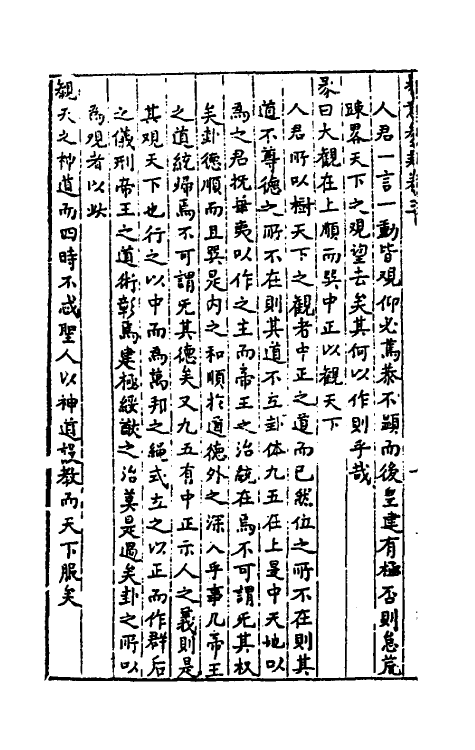 人君一言一動皆觀仰必篤恭不顯而後皇建有極否則怠荒
踈畧天下之觀望去矣其何以作則乎哉
彖曰大觀在上順而巽中正以觀天下
人君所以樹天下之觀者中正之道而已然位之所不在則其
道不尊德之所不在則其道不立卦体九五在上是中天地以
為之君撫華夷以作之主而帝王之治統在焉不可謂旡其权
矣卦德順而且巽是内之和順扵道德外之深入乎事几帝王
之道統㷌焉不可謂旡其德矣又九五有中正示人之義則是
其观天下也行之以中而為萬邦之䋲式立之以正而作群后
之儀刑帝王之道術彰焉建極綏猷之治莫是過矣卦之所以
為观者以此
觀天之神道而四時不忒聖人以神道設教而天下服矣